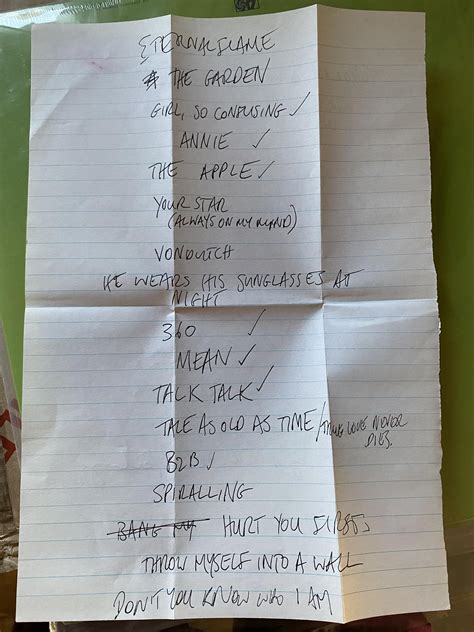 ETERNAL FLAME
* THE GARDEN
GIRL, SO CONFUSING ✓
ANNIE ✓
THE APPLE ✓
YOUR STAR
(ALWAYS ON MY MIND)
VONDUTCH
HE WEARS HIS SUNGLASSES AT
NIGHT
360 ✓
MEAN ✓
TALK TALK ✓
TALE AS OLD AS TIME / LOVE NEVER
DIES.
B2B ✓
SPIRALLING
BANG MY HURT YOU FIRST
THROW MYSELF INTO A WALL
DON'T YOU KNOW WHO I AM